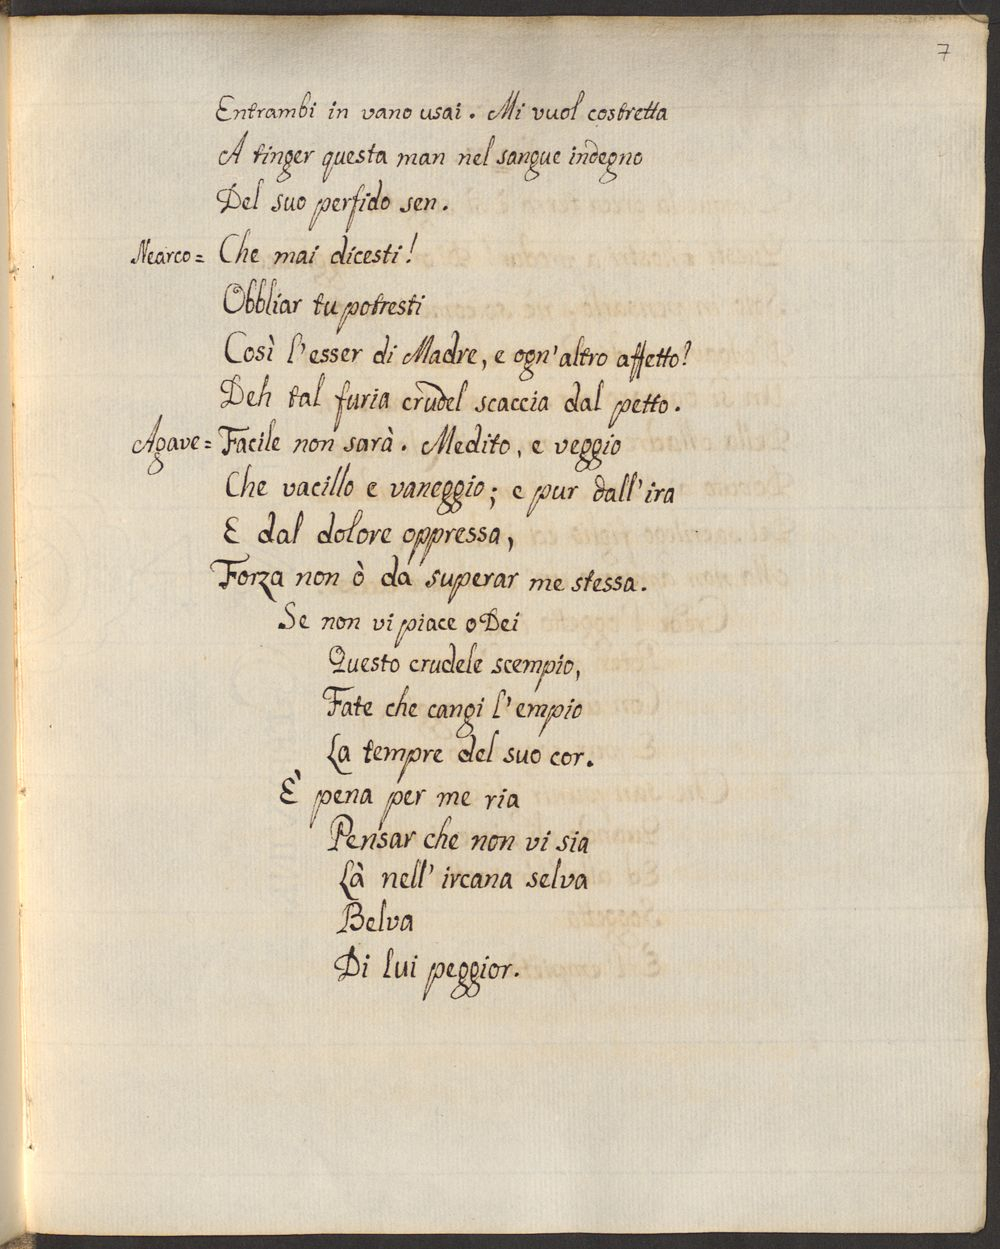 7
Entrambi in vano usai. Mi vuol costretta
A tinger questa man nel sangue indegno
Del suo perfido sen.
Nearco= Che mai dicesti!
Obbliar tu potresti
Così l'esser di Madre, e ogn'altro affetto?
Deh tal furia crudel scaccia dal petto.
Agave= Facile non sarà. Medito, e veggio
Che vacillo e vaneggio; e pur dall'ira
E dal dolore oppressa,
Forza non ò da superar me stessa.
Se non vi piace o Dei
Questo crudele scempio,
Fate che cangi l'empio
La tempre del suo cor.
È pena per me ria
Pensar che non vi sia
Là nell' ircana selva
Belva
Di lui peggior.